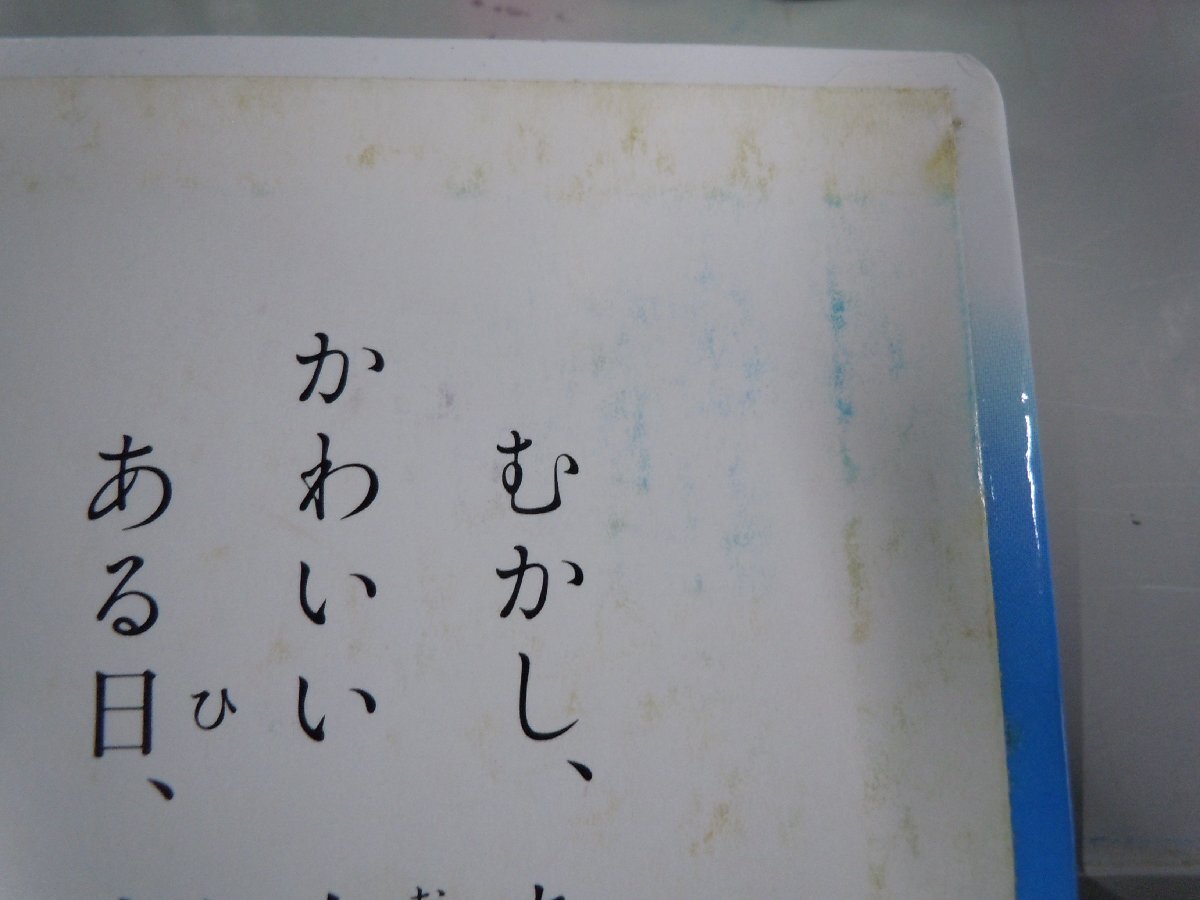 むかし、
かわいい
ある日、
ひ